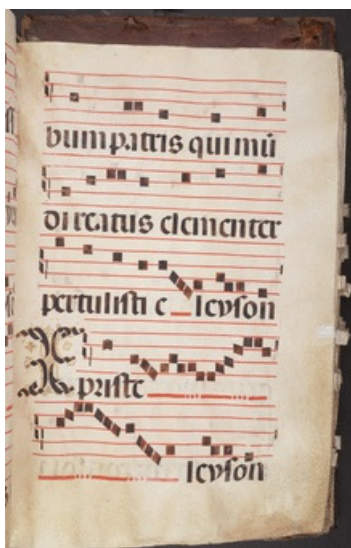 bum patris qui mū
di reatus clementer
pertulisti e leyson
Xpriste
leyson